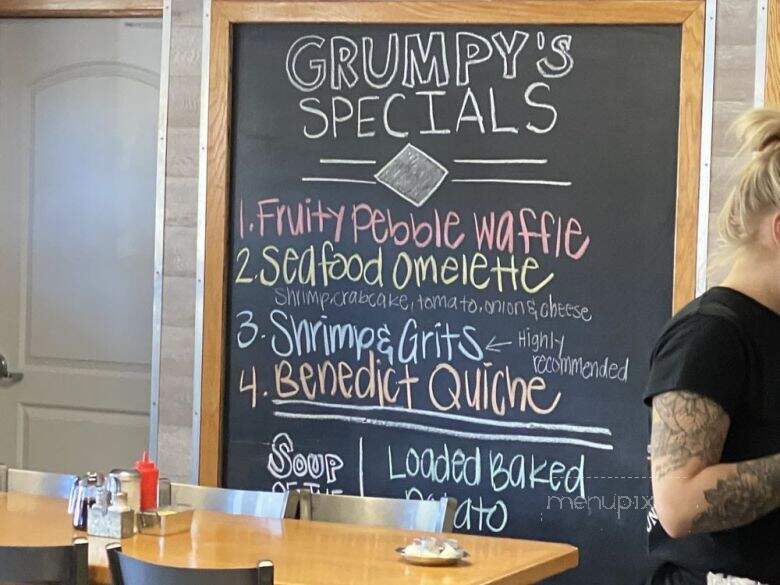 GRUMPY'S
SPECIALS
1. Fruity Pebble Waffle
2. Seafood Omelette
Shrimp, crabcake, tomato, onion & cheese
3. Shrimp & Grits ← Highly
recommended
4. Benedict Quiche
Soup | Loaded Baked
OF THE Potato
menupix